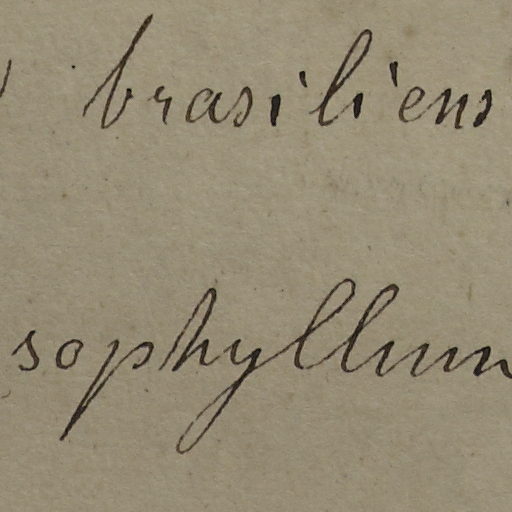 brasiliens
sophyllum